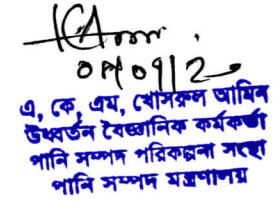 এ, কে, এম, খোসরুল আমিন
উর্ধ্বতন বৈজ্ঞানিক কর্মকর্তা
পানি সম্পদ পরিকল্পনা সংস্থা
পানি সম্পদ মন্ত্রণালয়